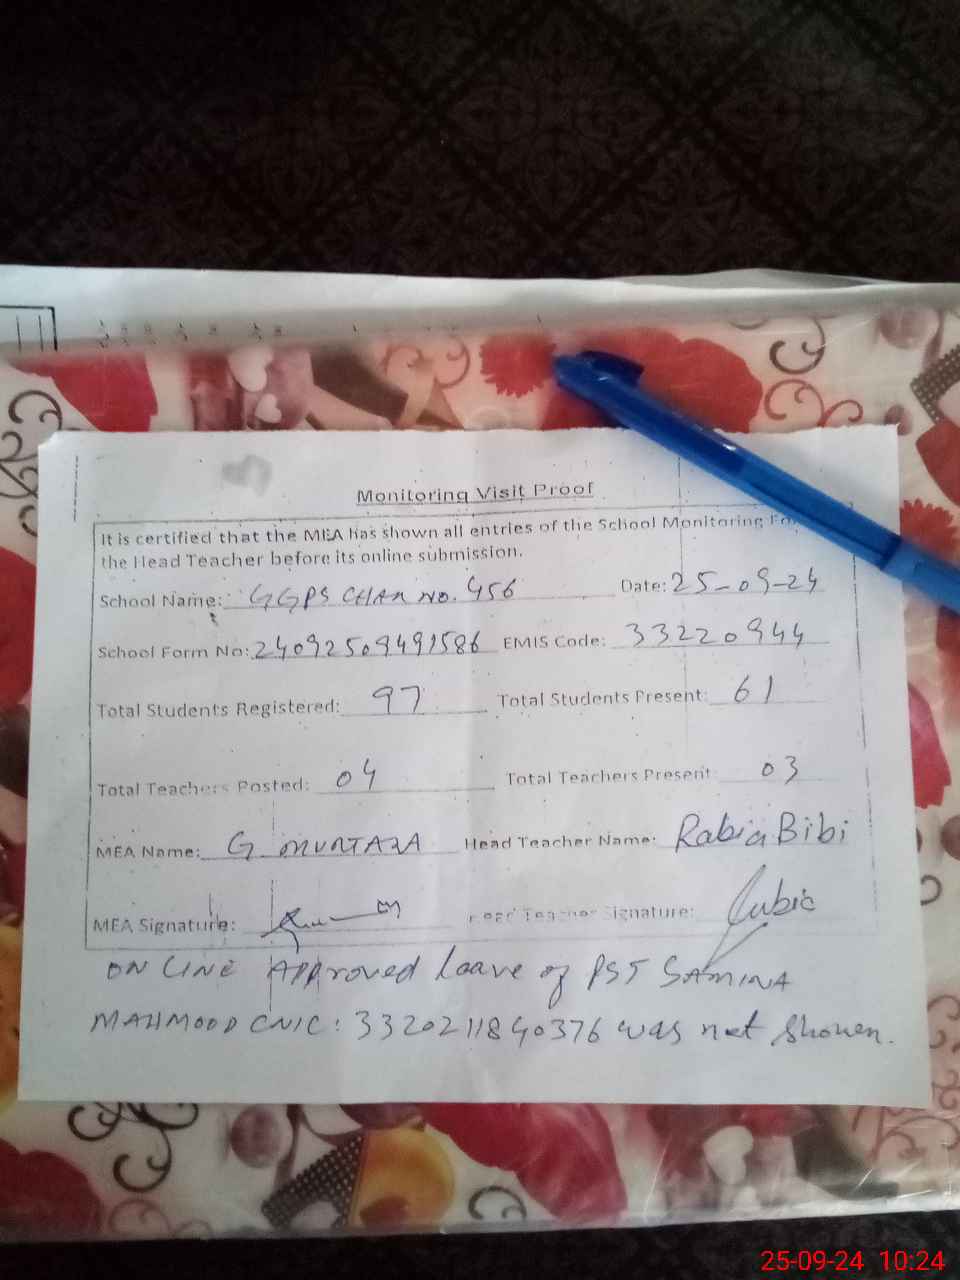 Monitoring Visit Proof
It is certified that the MEA has shown all entries of the School Monitoring Fo
the Head Teacher before its online submission.
School Name: GGPS CHAK NO. 456 Date: 25-09-24
School Form No: 24092509491586 EMIS Code: 33220944
Total Students Registered: 97 Total Students Present: 61
Total Teachers Posted: 04 Total Teachers Present: 03
MEA Name: G MURTAZA Head Teacher Name: Rabia Bibi
MEA Signature: Head Teacher Signature: Rabia
ON LINE APPRoved leave of PST SAMINA
MAHMOOD CNIC: 3320211840376 was not shown.
25-09-24 10:24